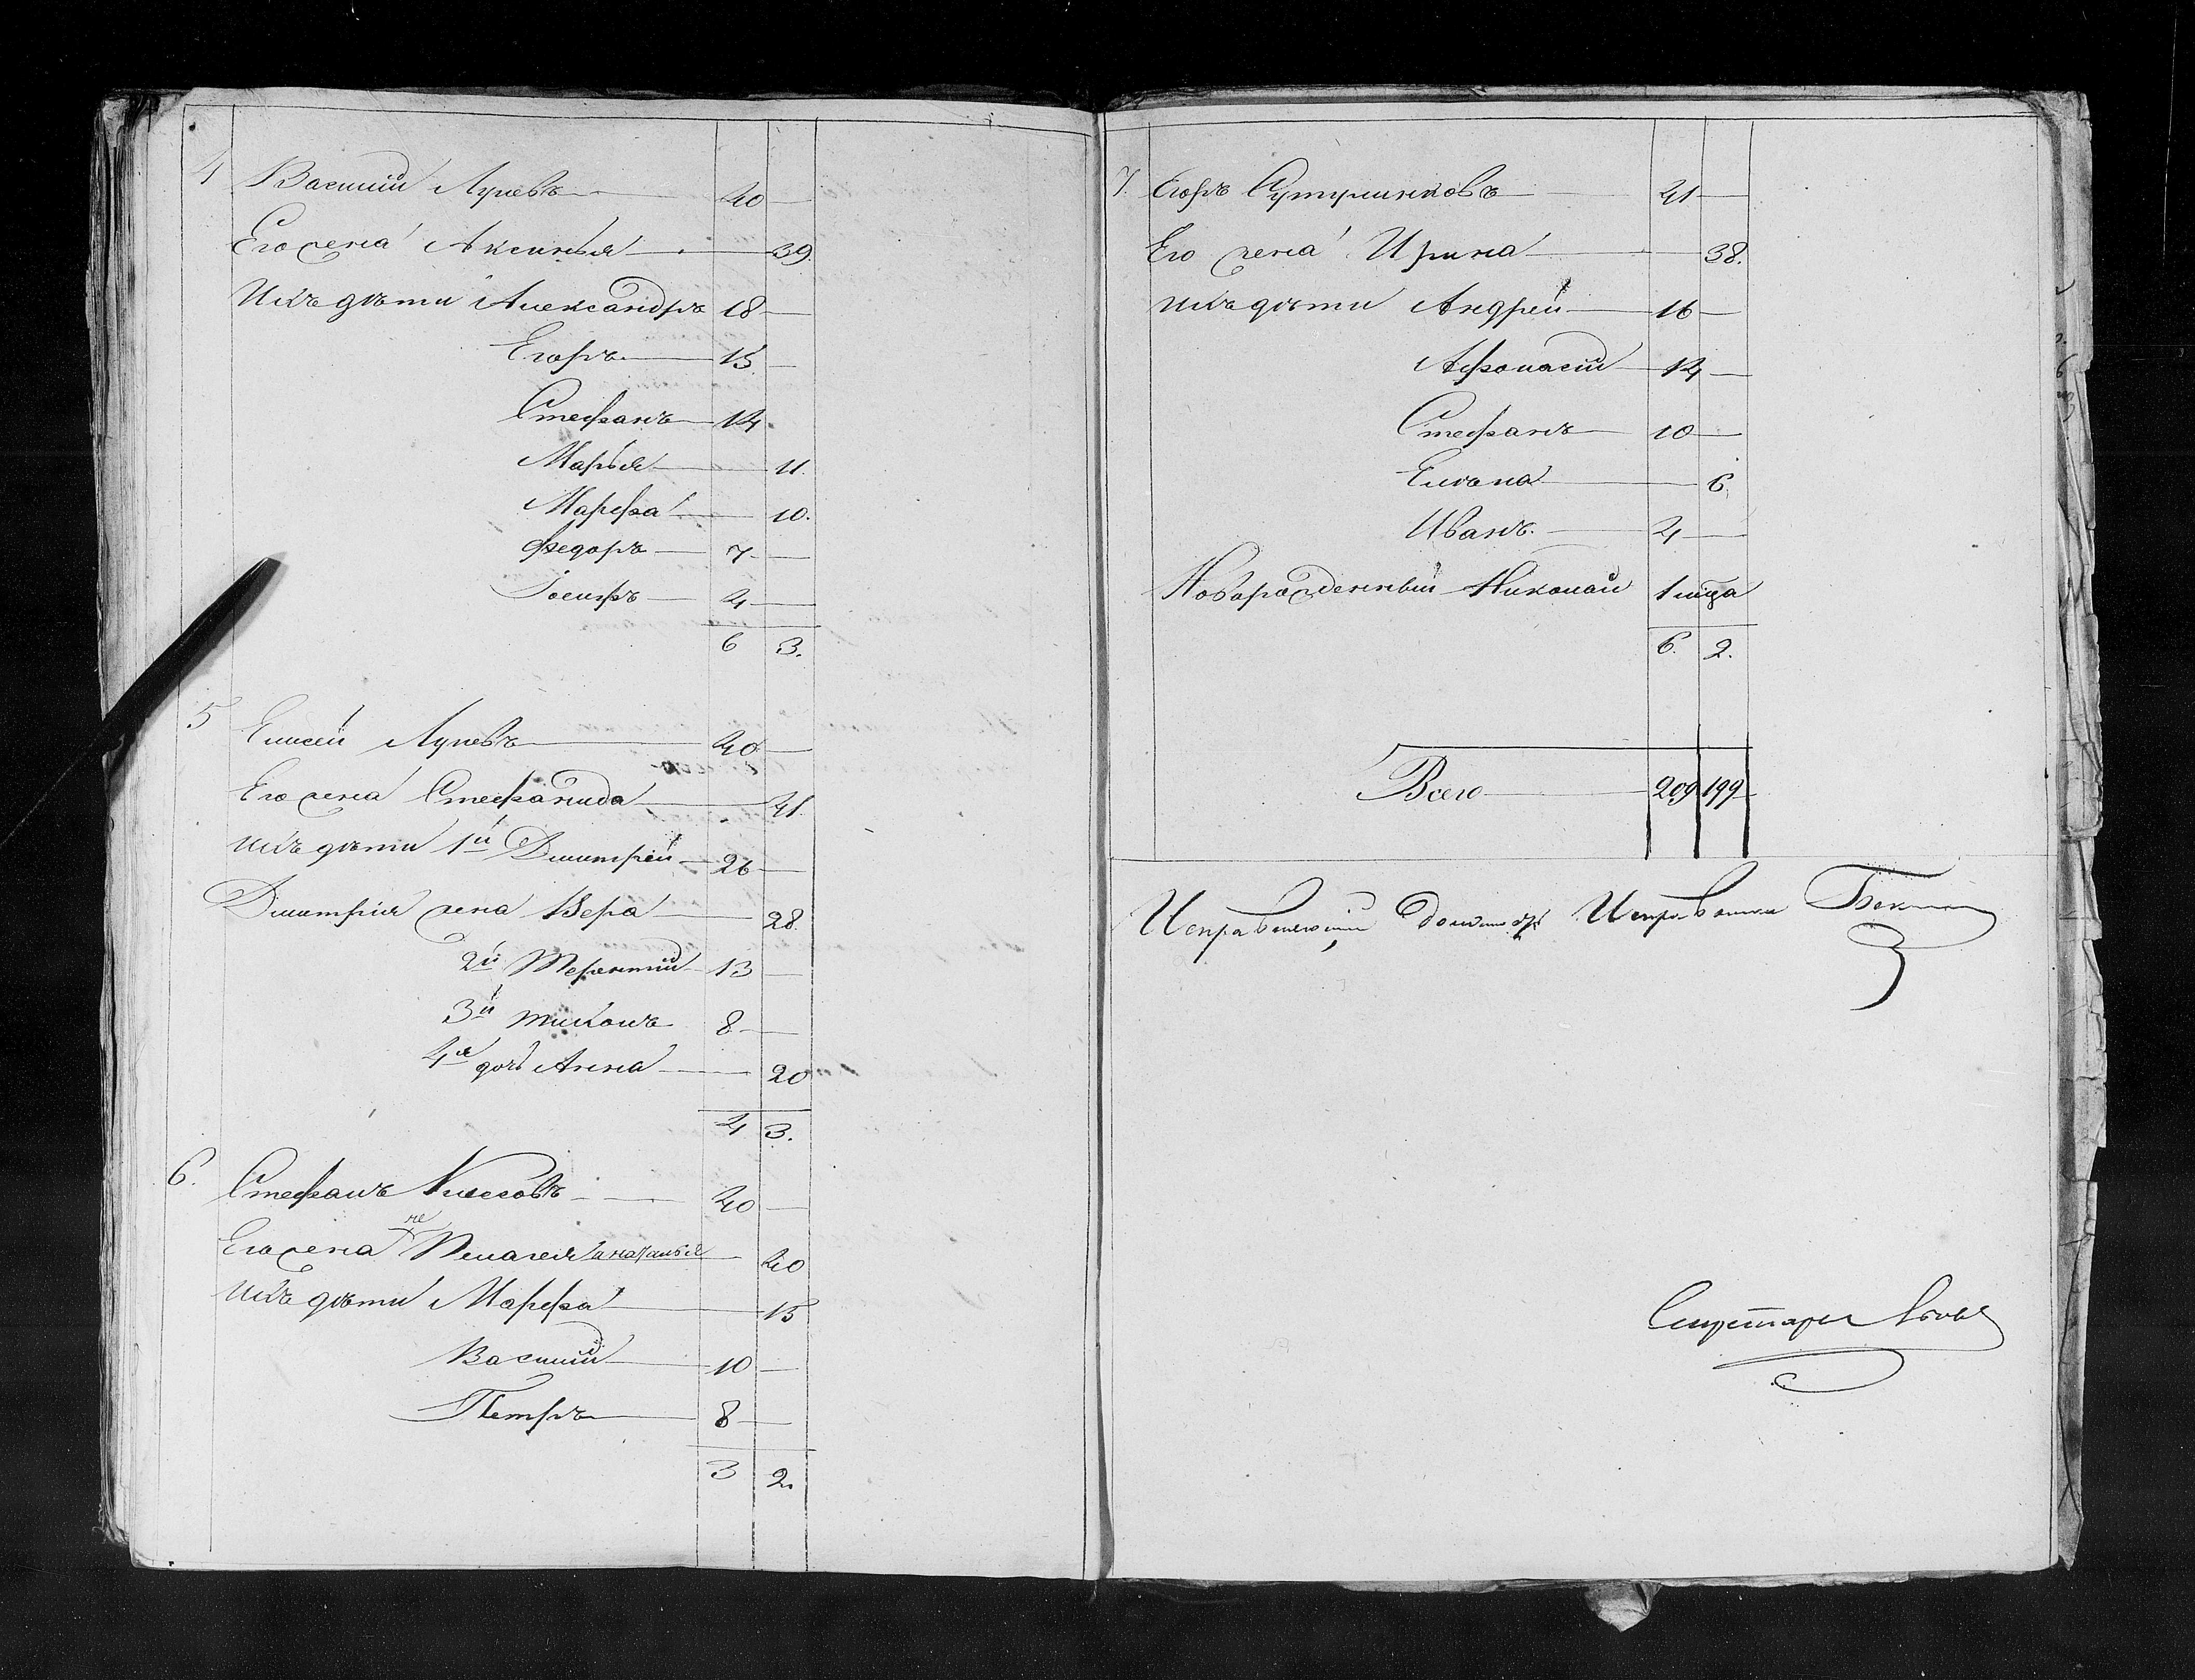 4 Василий Луневъ 40
Его жена Аксинья 39.
Ихъ дѣти Александръ 18
Егоръ 15
Стефанъ 14
Марья 11.
Марфа 10.
Федоръ 7
Іосифъ 4
6 3.
5 Елисей Луневъ 40
Его жена Стефанида 41.
Ихъ дѣти 1й Дмитрей 26
Дмитрія жена Вера 28.
2й Терентий 13
3й Тихонъ 8
4я дочь Анна 20
4 3.
6. Стефанъ 40
не
Его жена Пелагея а наталья 40
Ихъ дѣти Марфа 15
Василий 10
Петръ 8
3 2.
7. Егоръ Сутулинковъ 41
Его жена Ирина 38.
Ихъ дѣти Андрей 16
Афонасий 14
Стефанъ 10
Елѣна 6.
Иванъ. 4
Новорожденный Николай 1 мца
6. 2.
Всего 209 199
Исправляющий должность Исправника
Секретарь